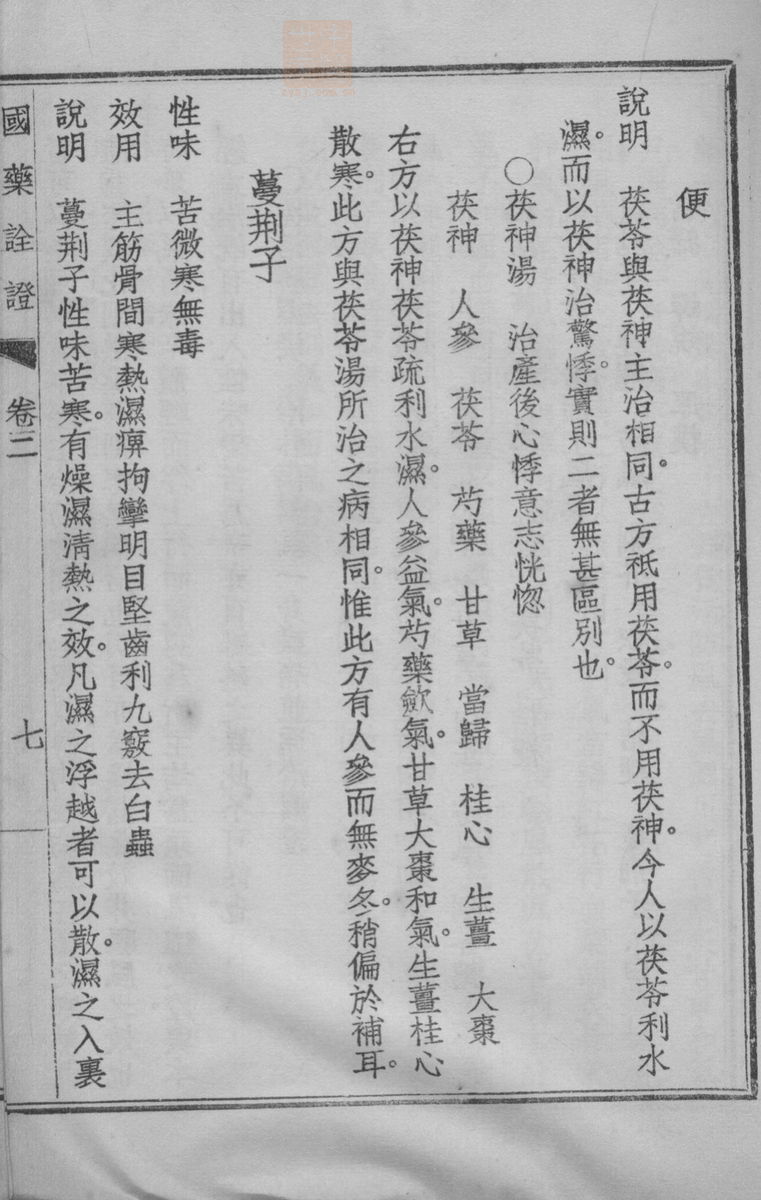 便
說明　茯苓與茯神主治相同。古方祗用茯苓。而不用茯神。今人以茯苓利水
濕。而以茯神治驚悸。實則二者無甚區別也。
○茯神湯　治產後心悸意志恍惚
茯神　人參　茯苓　芍藥　甘草　當歸　桂心　生薑　大棗
右方以茯神茯苓疏利水濕。人參益氣。芍藥歛氣。甘草大棗和氣。生薑桂心
散寒。此方與茯苓湯所治之病相同。惟此方有人參而無麥冬。稍偏於補耳。
蔓荆子
性味　苦微寒無毒
效用　主筋骨間寒熱濕痹拘攣明目堅齒利九竅去白蟲
說明　蔓荆子性味苦寒。有燥濕清熱之效。凡濕之浮越者可以散。濕之入裏
國藥詮證　卷三　七